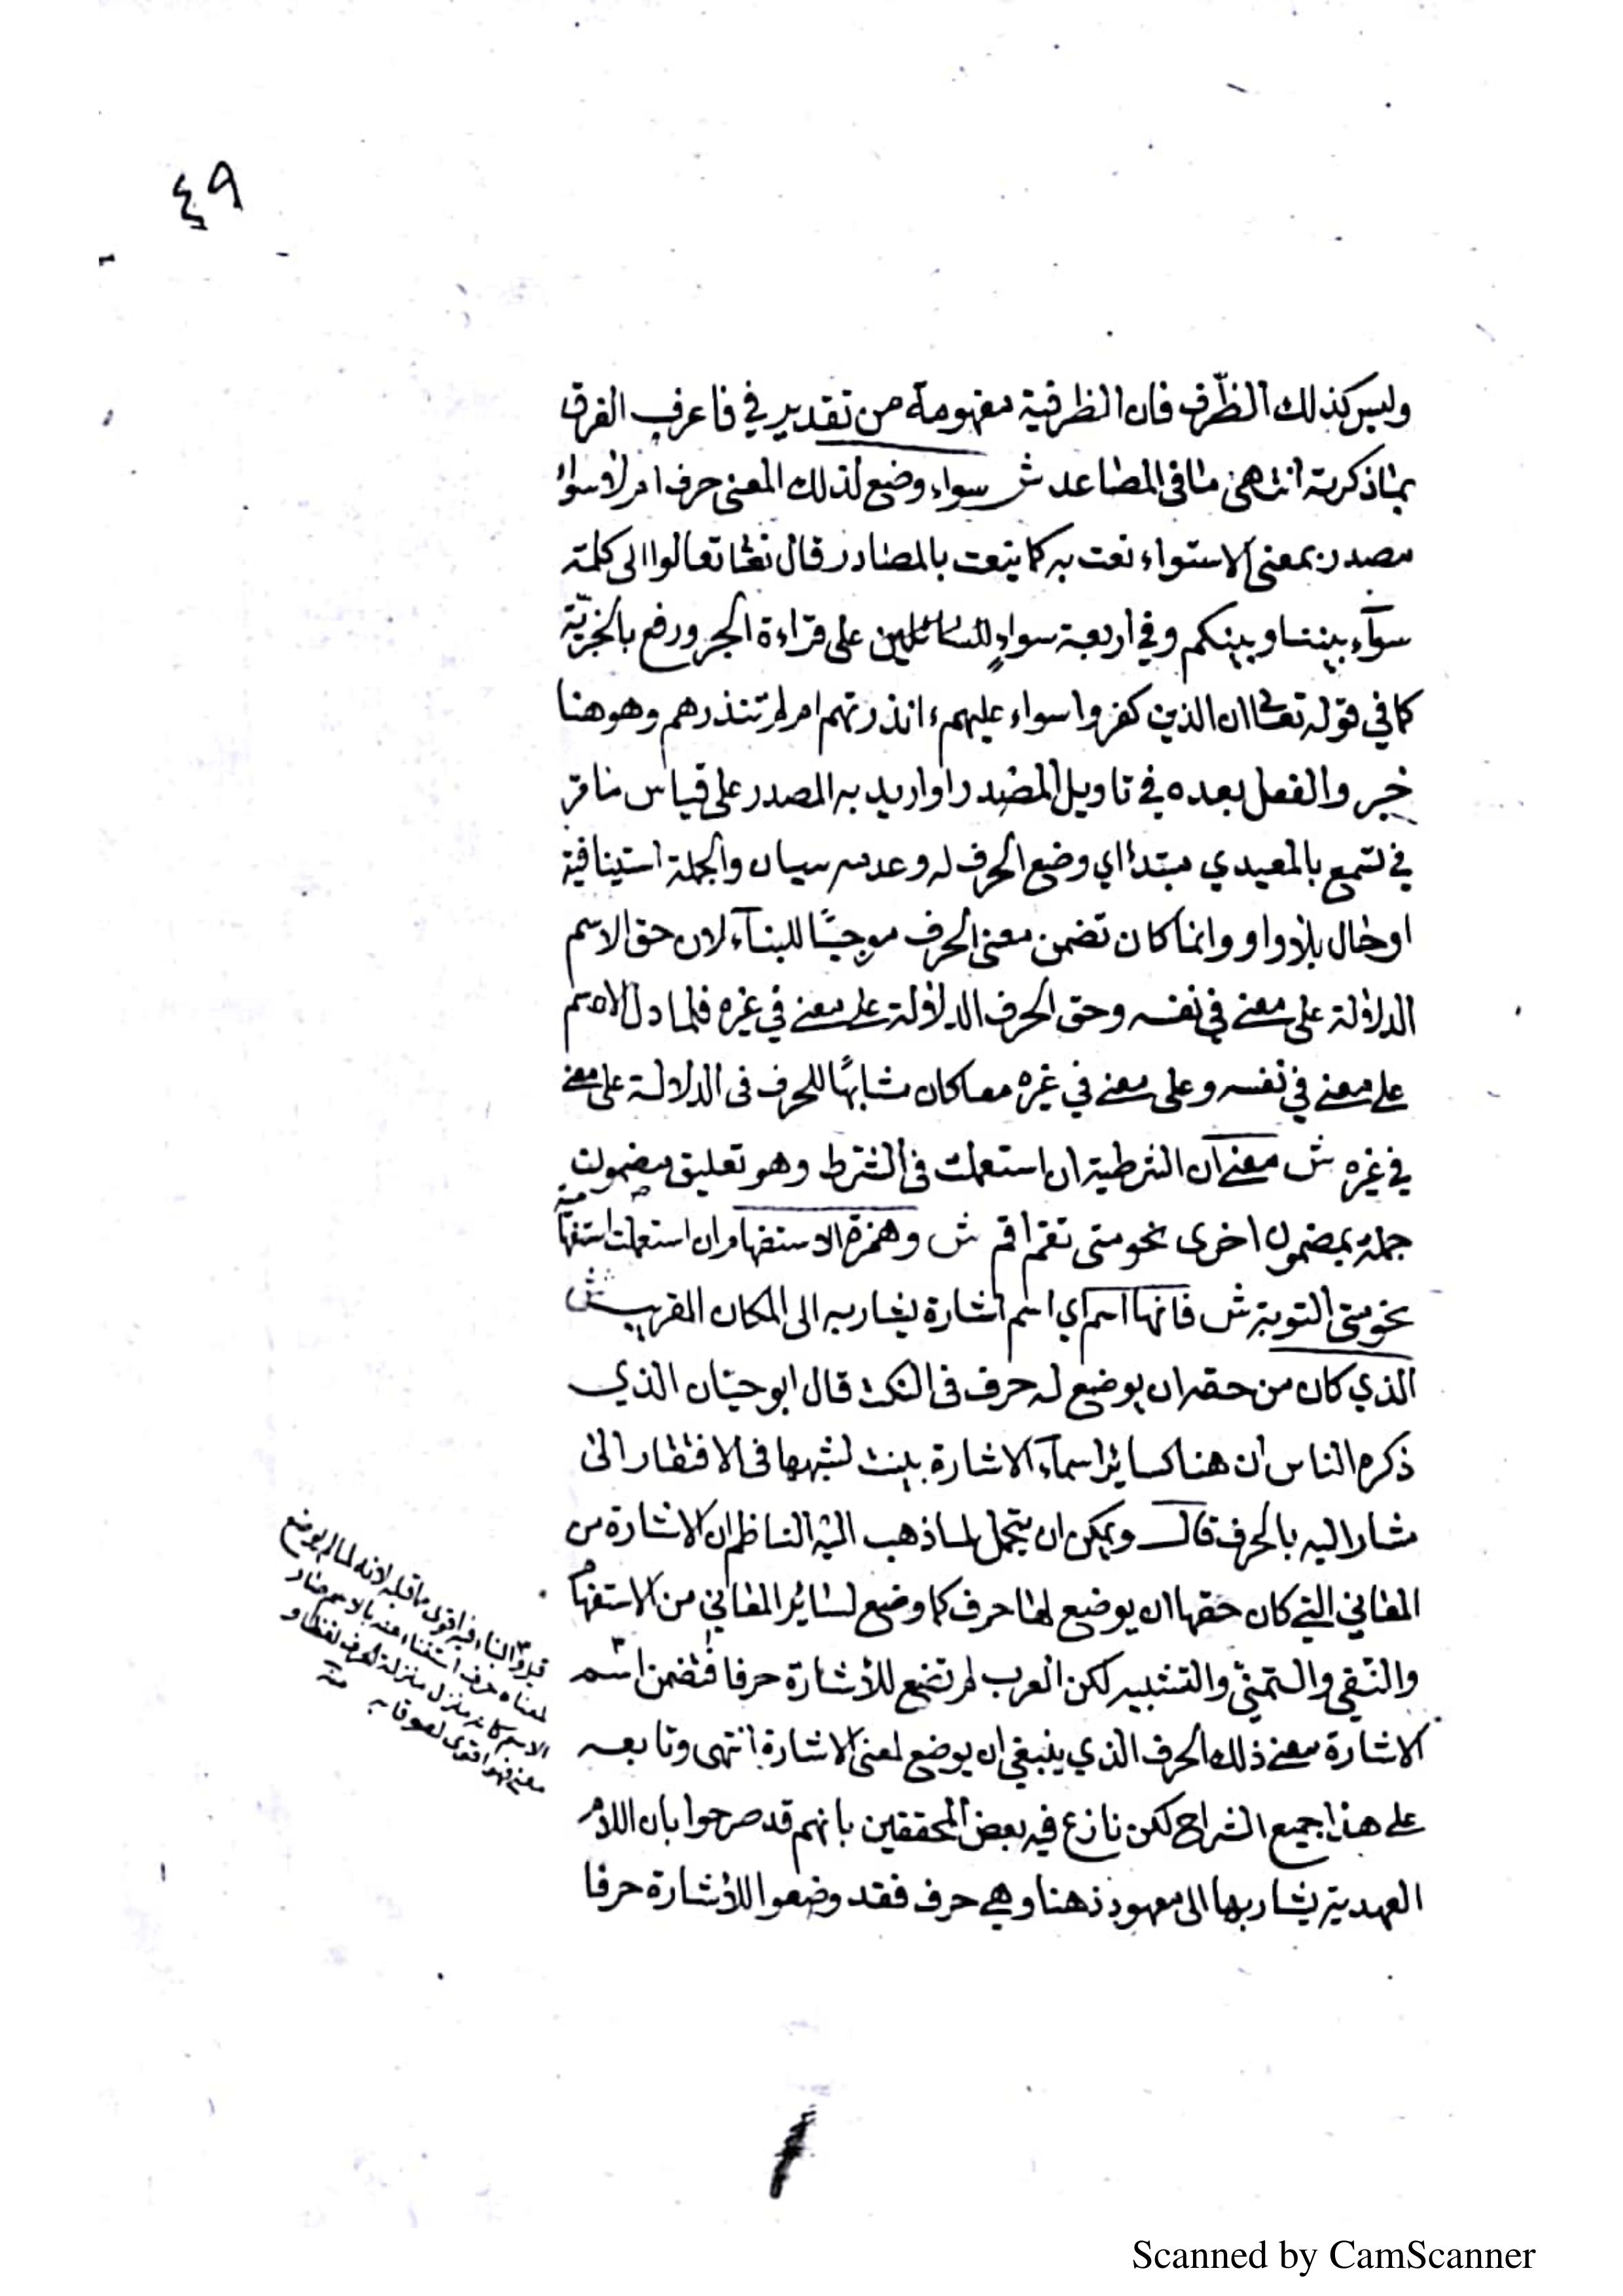 ٤٩
وليس كذلك الظّرف فان الظرفية مفهومة من تقدير في فاعرف الفرق
بما ذكرته انتهى ما في المصاعد ش سواء وضع لذلك المعنى حرف ام لا سواء
مصدر بمعنى الاستواء نعت به كما ينعت بالمصادر قال تعا تعالوا الى كلمة
سوآء بيننا وبينكم وفي اربعة سواءٍ للسائلين على قراءة الجر ورفع بالخبريّة
كما في قوله تعالى ان الذين كفروا سواء عليهم ءانذرتهم ام لم تنذرهم وهو هنا
خبر والفعل بعده في تاويل المصدر او اريد به المصدر على قياس ما مر
في تسمع بالمعيدي مبتدأ اي وضع الحرف له وعدمه سيان والجملة استينافية
او حال بلا واو وانما كان تضمن معنى الحرف موجبًا للبنآء لان حق الاسم
الدلالة على معنے في نفسه وحق الحرف الدلالة على معنے في غيره فلما دل الاسم
على معنے في نفسه وعلى معنے في غيره معا كان مشابهًا للحرف في الدلالة على معنے
في غيره ش معنے ان الشرطية ان استعملت في الشرط وهو تعليق مضمون
جملة بمضمون اخرى نحو متى تقم اقم ش وهمزة الاستفهام ان استعملت استفهامية
نحو متى التوبة ش فانها اسم اي اسم اشارة يشار به الى المكان القريب ش
الذي كان من حقه ان يوضع له حرف في النكت قال ابو حيان الذي
ذكره الناس ان هنا كسائر اسمآء الاشارة بنيت لشبهها في الافتقار الى
مشار اليه بالحرف قال ويمكن ان يتحمل لما ذهب اليه الناظم ان الاشارة من
المعاني التي كان حقها ان يوضع لها حرف كما وضع لسائر المعاني من الاستفهام
والنّفي والتمنّي والتشبيه لكن العرب لم تضع للاشارة حرفا فتضمن اسم
الاشارة معنے ذلك الحرف الذي ينبغي ان يوضع لمعنى الاشارة انتهى وتابعه
على هذا جميع الشراح لكن نازع فيه بعض المحققين بانهم قد صرحوا بان اللام
العهدية يشار بها الى معهود ذهنا وهي حرف فقد وضعوا للاشارة حرفا
قيل والبناء فيه اقوى مما قبله لانه لما لم يوضع
لمعناه حرف استغناء عنه بالاسم صار
الاسم كانه منزل منزلة الحرف لفظا و
معنى فهو اقوى لعوقا به منه
Scanned by CamScanner